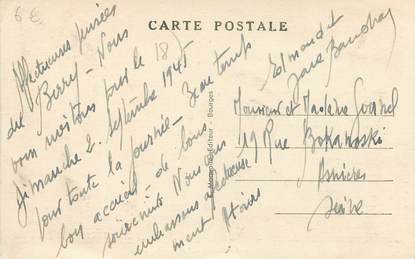 6 €
CARTE POSTALE
Affectueuses pensées
du Berry - Nous
vous invitons pour le 18
Dimanche 2 septembre 1945
pour toute la journée - Beau temps
bon accueil - de bons
souvenirs Nous vous
embrassons affectueuse
ment
Edmond et
Jane
Monsieur et Madame
19 Rue Bokanoski
Asnières
Seine
Éditeur - Bourges